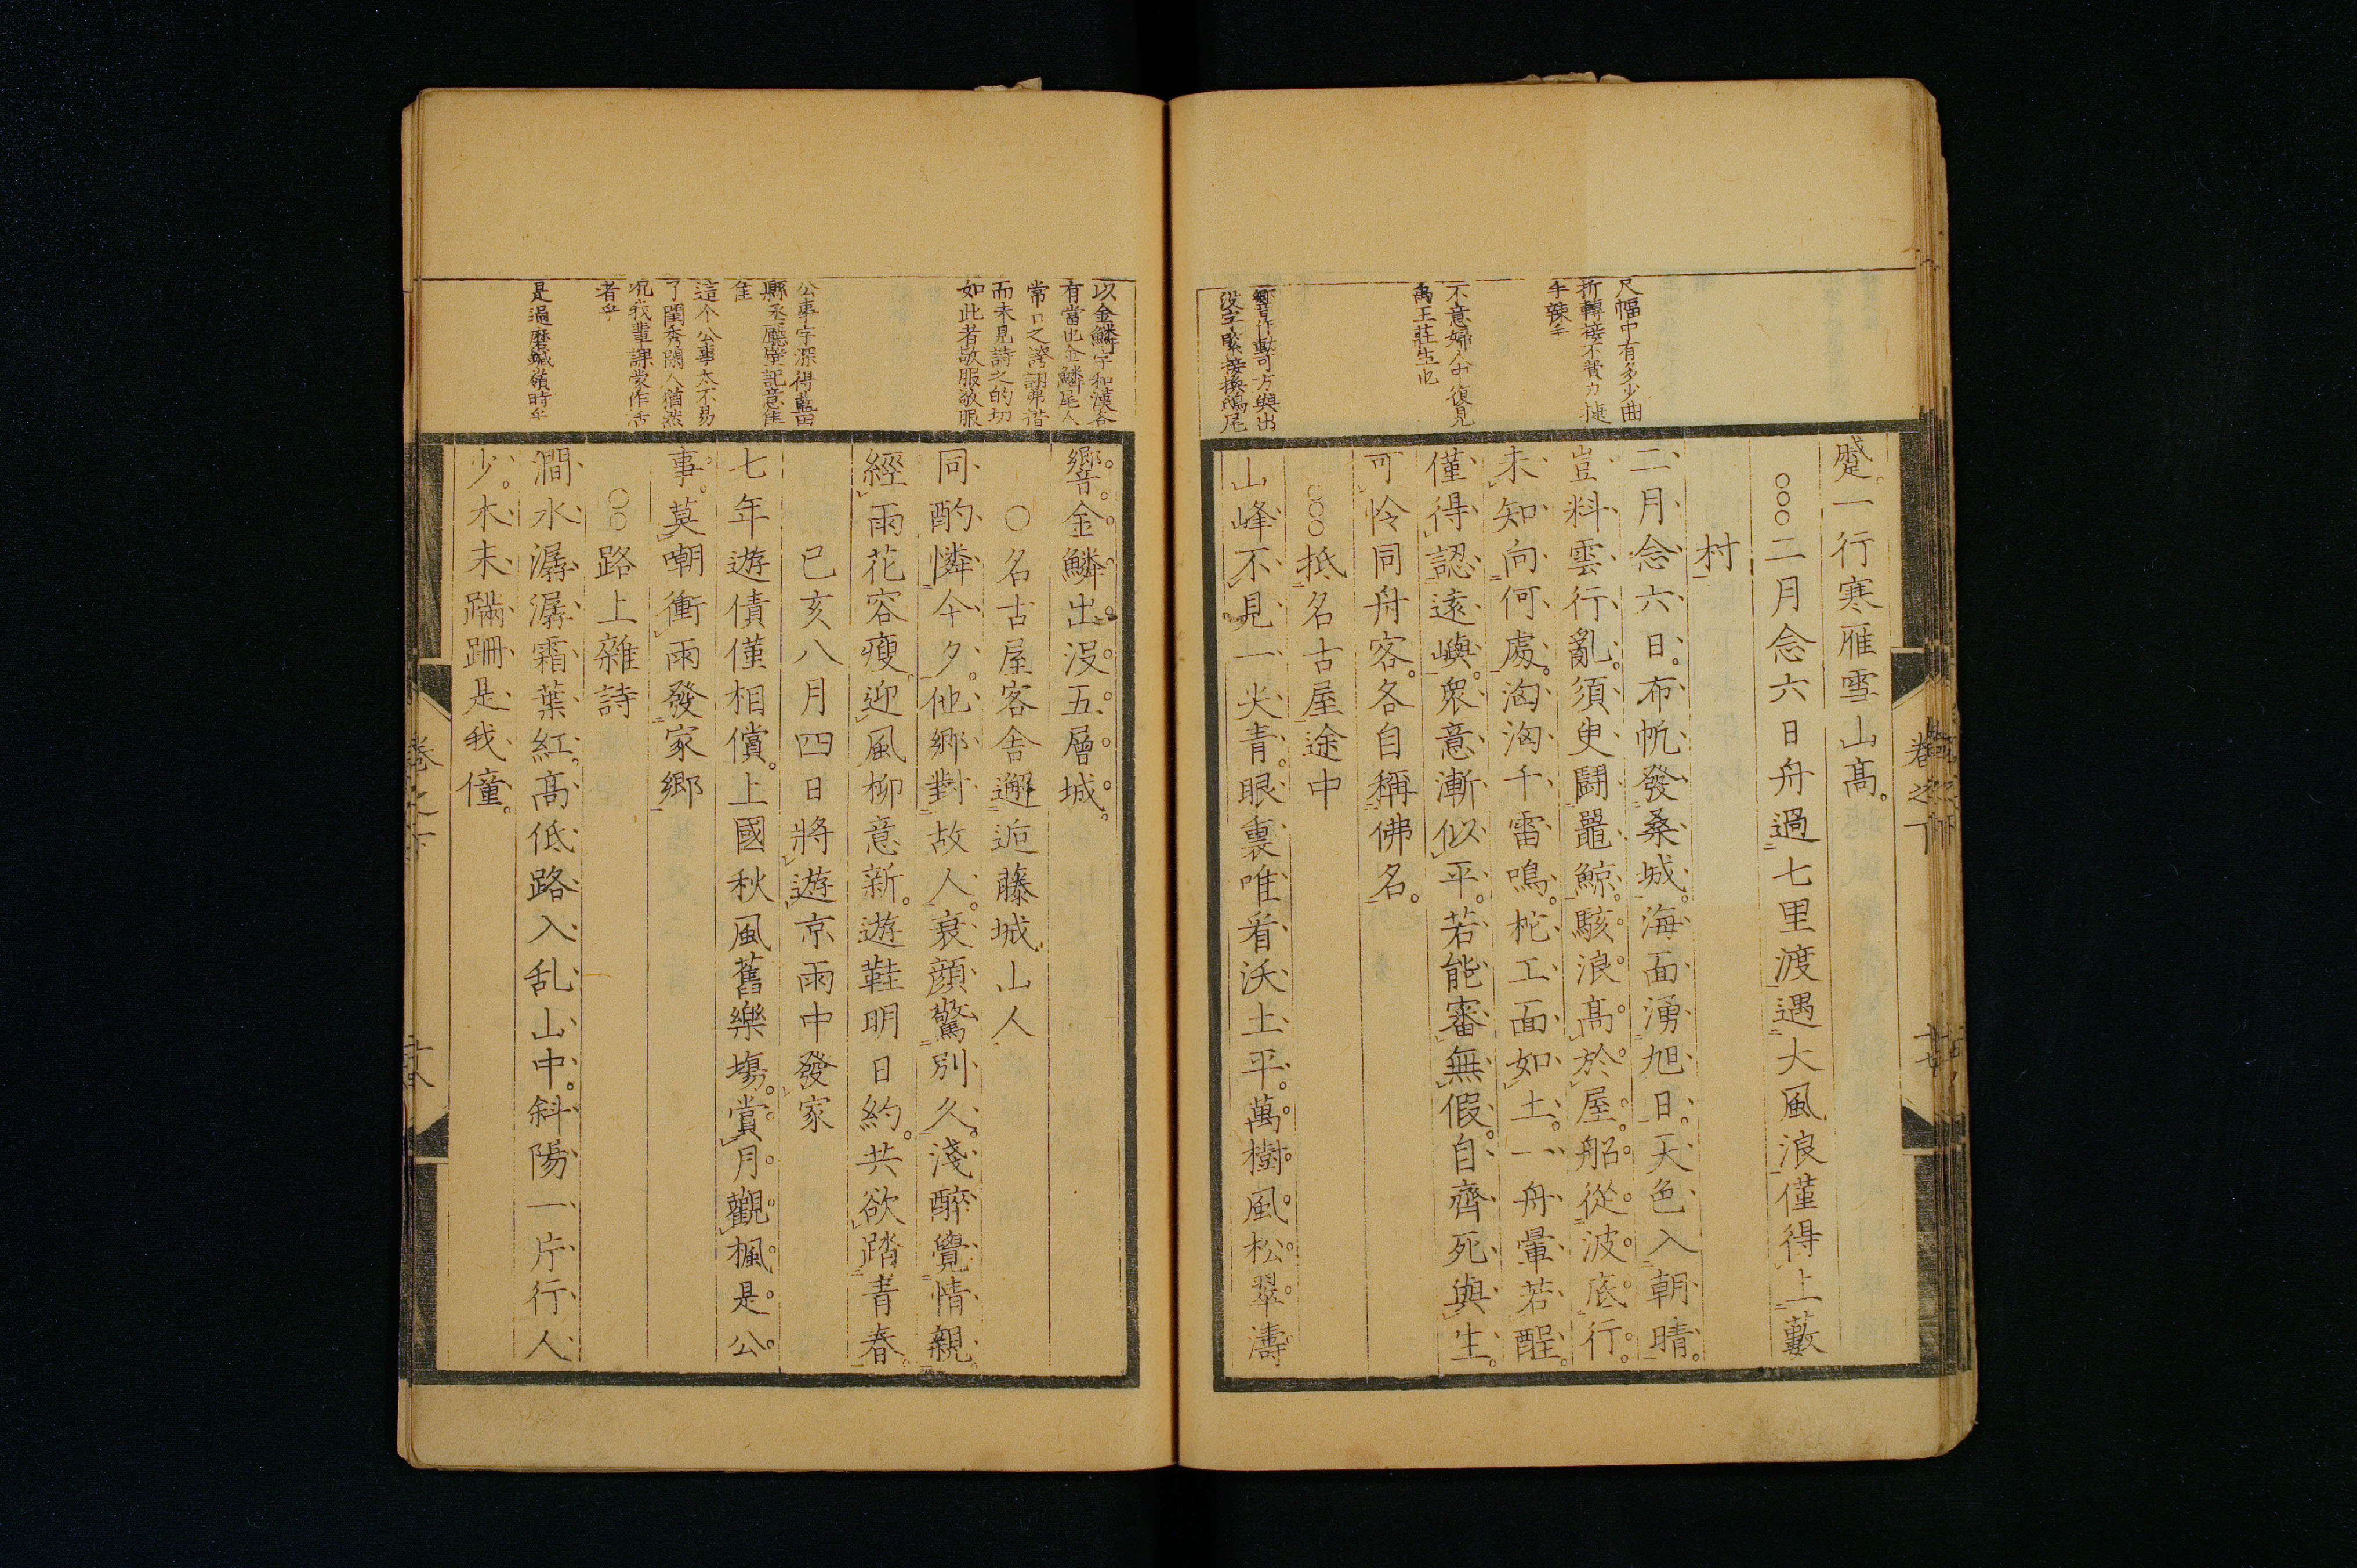 尺幅中有多少曲
折轉接不費力捷
手辣手
不意婦人中復見
禹王莊生也
響作動可方與出
没字緊接換鳴尾
蹙一行寒雁雪山髙。
○○○二月念六日舟過七里渡遇大風浪僅得上藪
村
二月念六日。布帆發桑城。海面湧旭日。天色入朝晴。
豈料雲行亂。須臾鬪鼉鯨。駭浪髙於屋。船從波底行。
未知向何處。洶洶千雷鳴。柁工面如土。一舟暈若酲。
僅得認遠嶼。衆意漸似平。若能審無假。自齊死與生。
可怜同舟客。各自稱佛名。
○○○抵名古屋途中
山峰不見一尖青。眼裏唯看沃土平。萬樹風松翠濤
卷之下
以金鱗字和漢各
有當也金鱗尾人
常口之誇詡弗措
而未見詩之的切
如此者敬服敬服
公事字深得藍田
縣丞廳壁記意佳
佳
這个公事太不易
了閨秀閑人猶然
况我輩課蒙作活
者乎
是過磨鍼嶺時乎
響。金鱗出没五層城。
○名古屋客舎邂逅藤城山人
同酌憐今夕。他郷對故人。衰顔驚別久。淺醉覺情親。
經雨花容瘦。迎風柳意新。遊鞋明日約。共欲踏青春。
已亥八月四日將遊京雨中發家
七年遊債僅相償。上國秋風舊樂塲。賞月觀楓是公
事。莫嘲衝雨發家郷
○○路上雜詩
澗水潺潺霜葉紅。髙低路入乱山中。斜陽一片行人
少。木末蹣跚是我僮。
卷之下